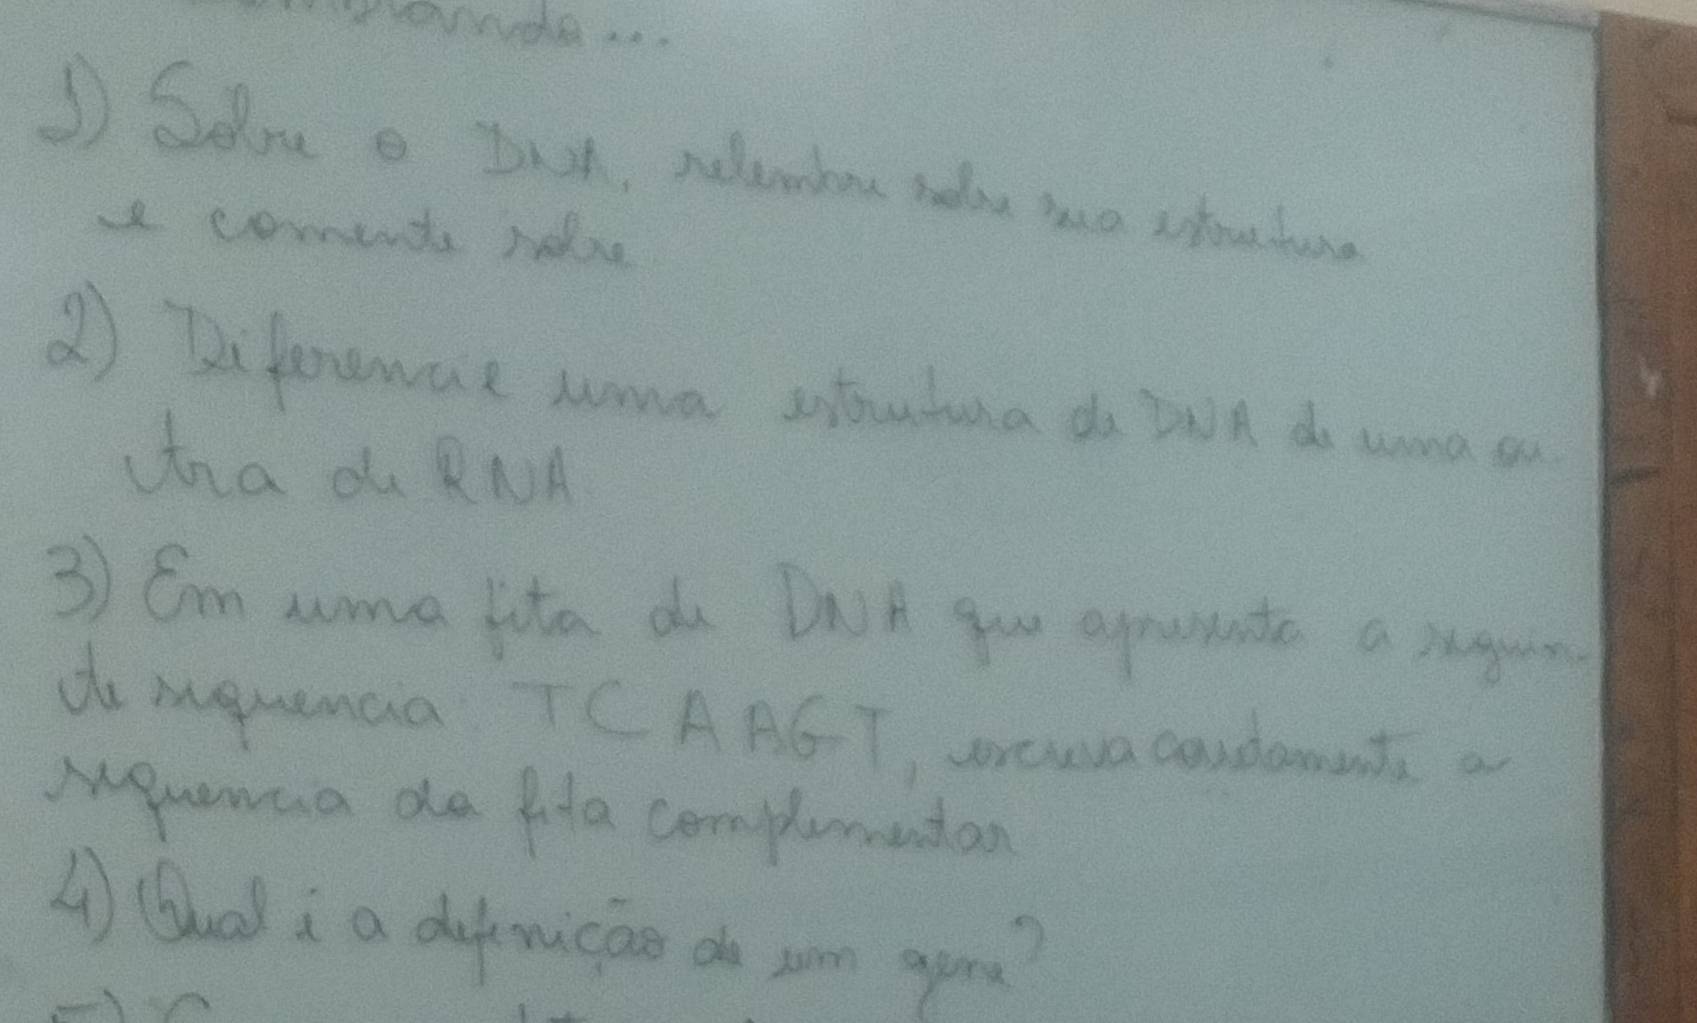 1) Sobre o DNA, relembre sobre sua estrutura
e comente sobre
2) Diferencie uma estrutura de DNA de uma ou
tra de RNA
3) Em uma fita de DNA que apresenta a seguin-
te sequencia TCAAGT, escreva corretamente a
sequencia da fita complementar
4) Qual é a definição de um gene?